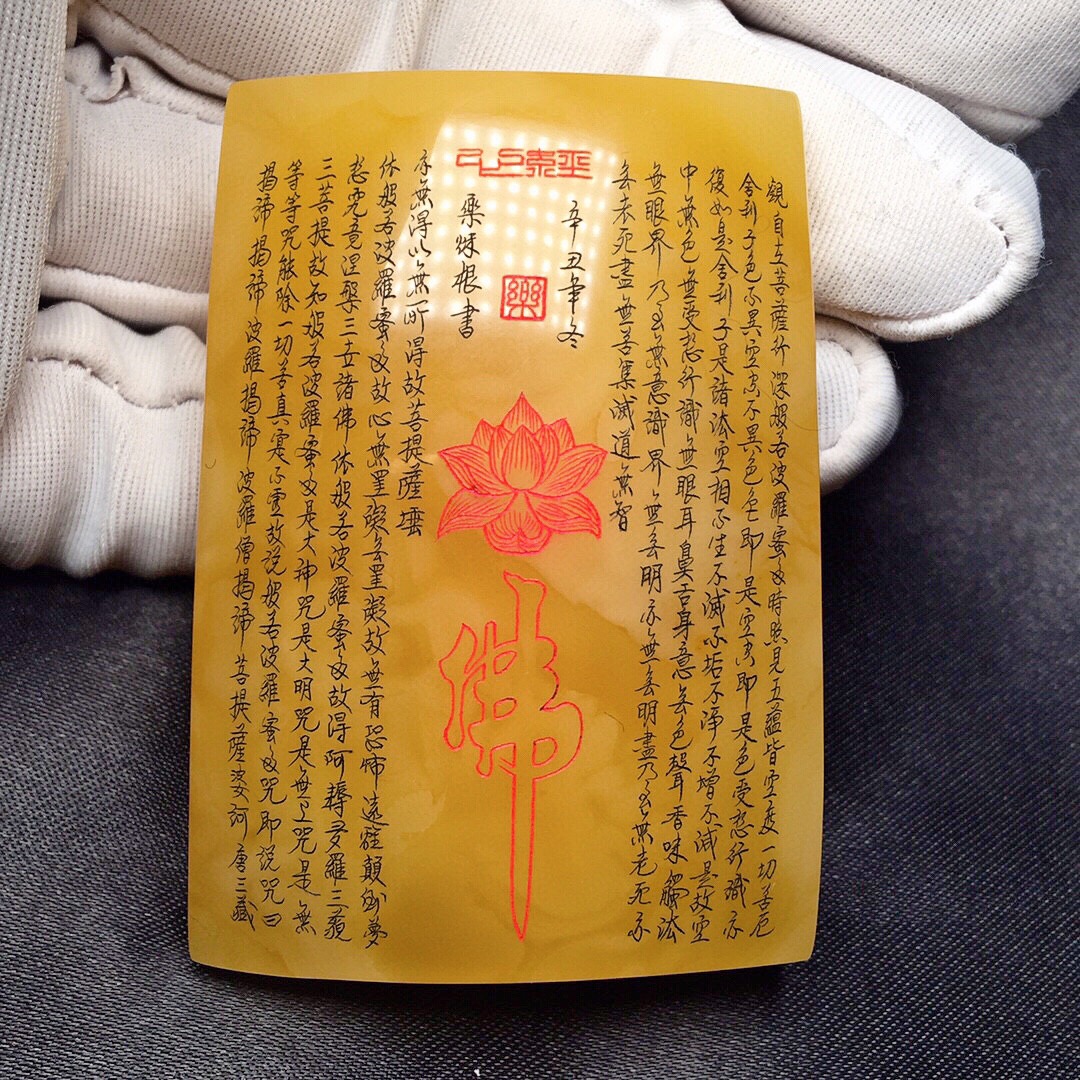 心經
觀自在菩薩行深般若波羅蜜多時照見五蘊皆空度一切苦厄
舍利子色不異空空不異色色即是空空即是色受想行識亦
復如是舍利子是諸法空相不生不滅不垢不淨不增不減是故空
中無色無受想行識無眼耳鼻舌身意無色聲香味觸法
無眼界乃至無意識界無無明亦無無明盡乃至無老死亦
無老死盡無苦集滅道無智
亦無得以無所得故菩提薩埵
依般若波羅蜜多故心無罣礙無罣礙故無有恐怖遠離顛倒夢
想究竟涅槃三世諸佛依般若波羅蜜多故得阿耨多羅三藐
三菩提故知般若波羅蜜多是大神咒是大明咒是無上咒是無
等等咒能除一切苦真實不虛故說般若波羅蜜多咒即說咒曰
揭諦揭諦波羅揭諦波羅僧揭諦菩提薩婆訶唐三藏
辛丑年冬
樂根書
樂
佛